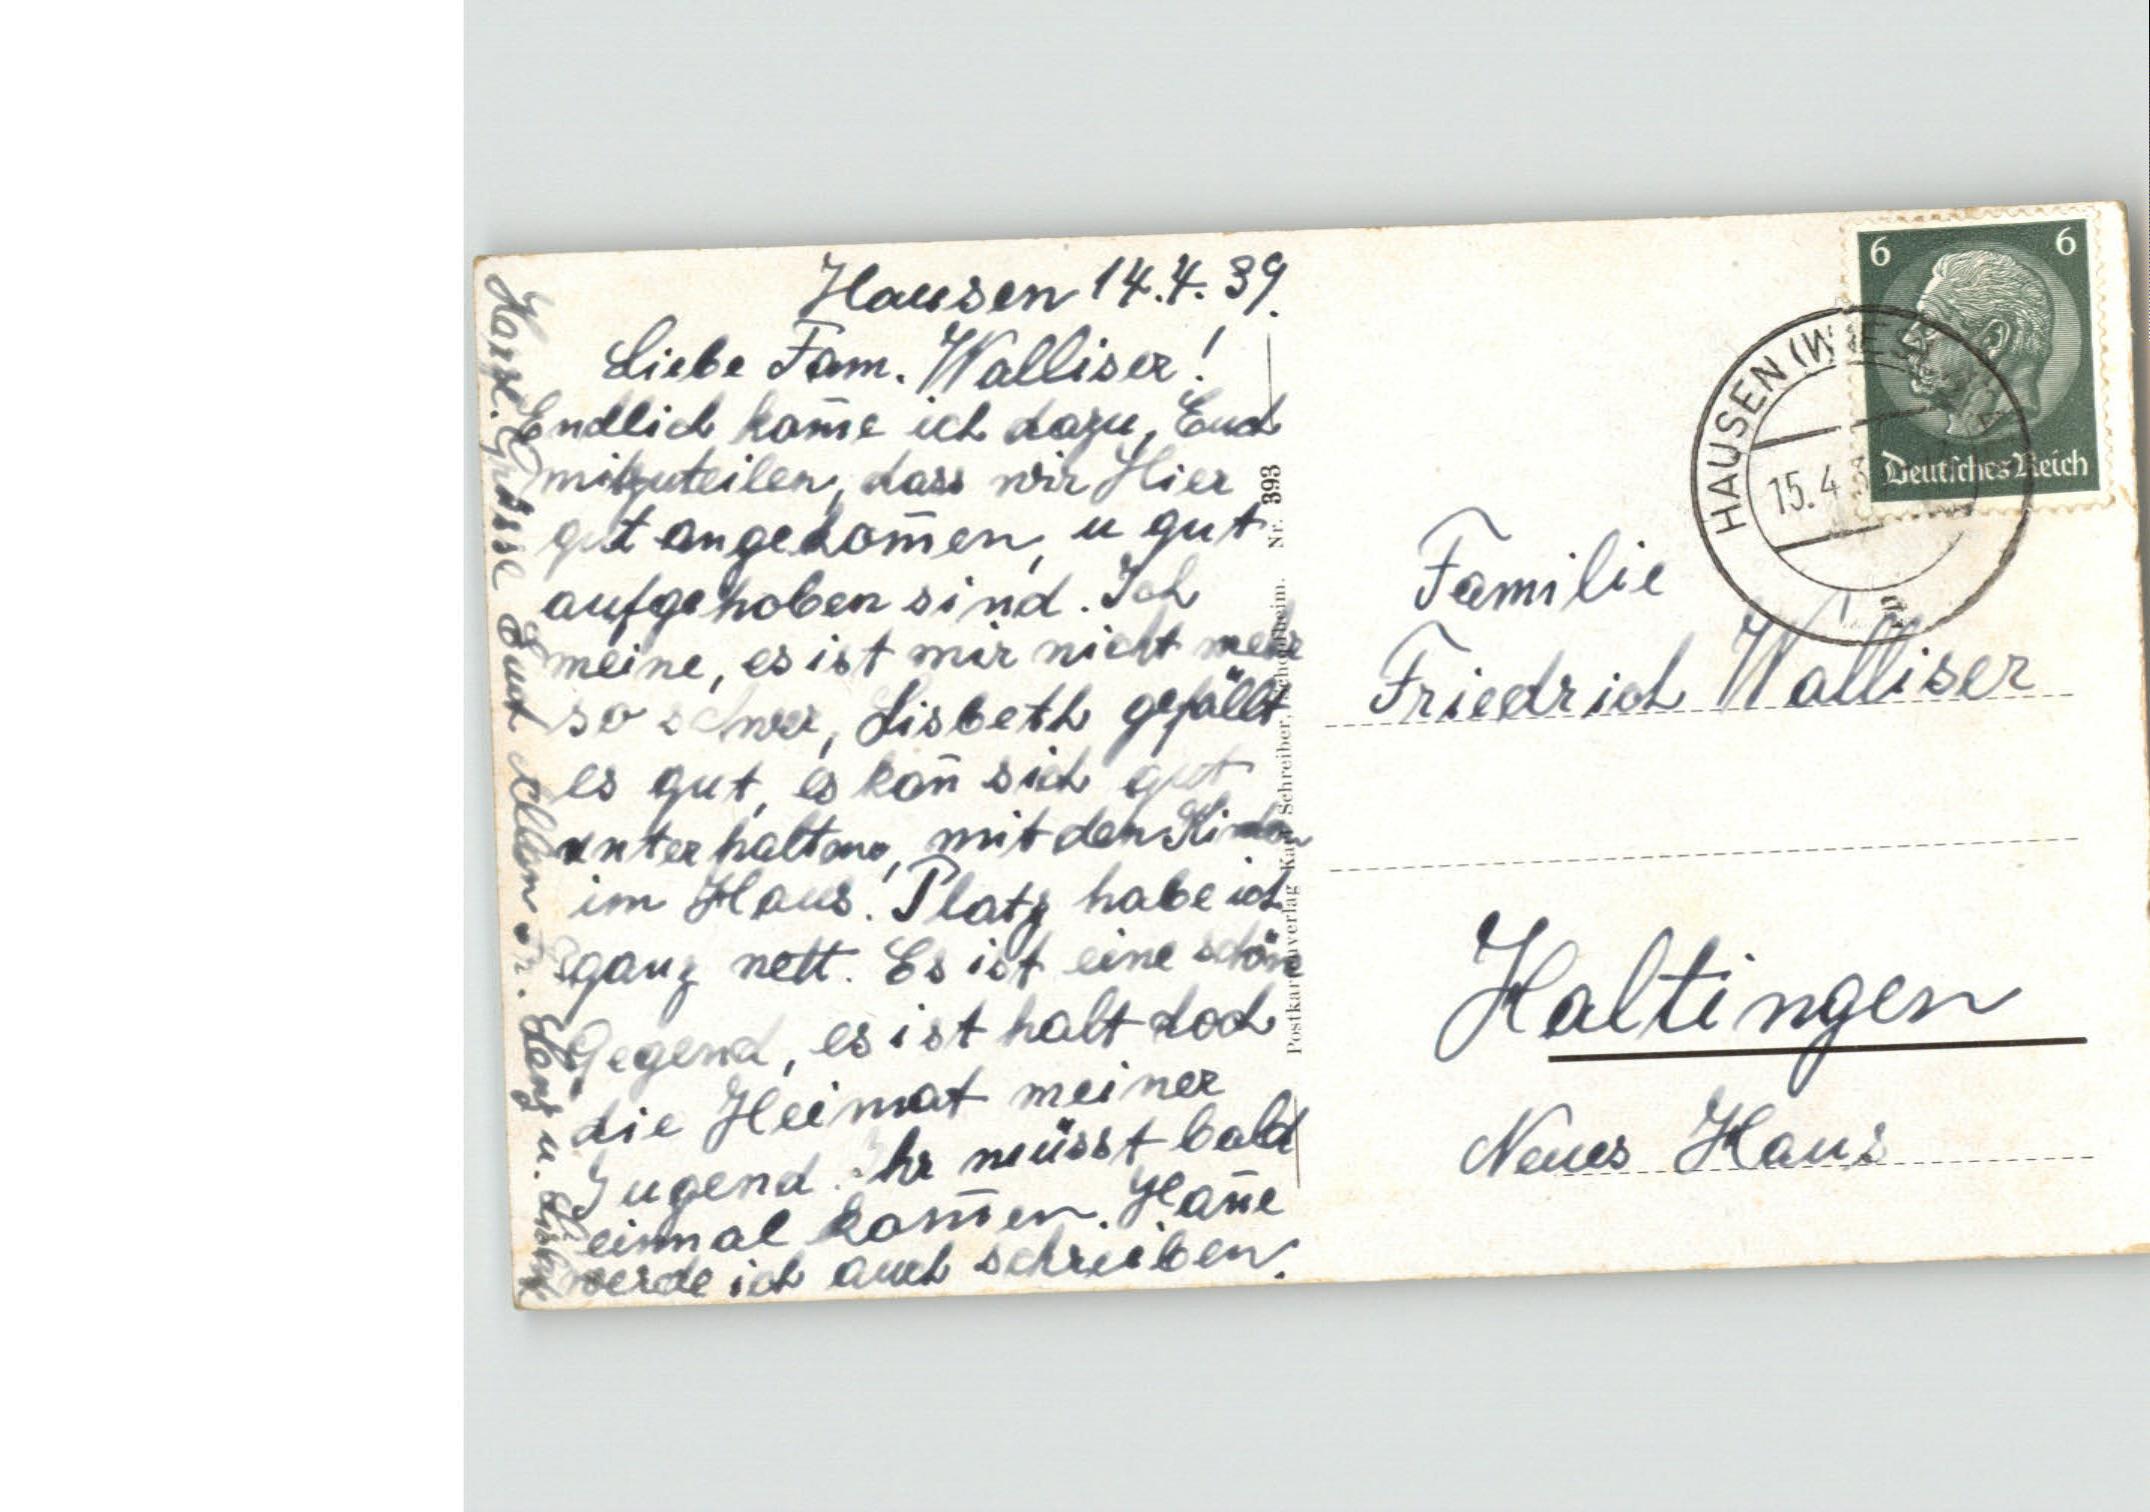 Hausen 14.4.39.
Liebe Fam. Walliser!
Endlich kom̄e ich dazu, Euch
mitzuteilen, dass wir Hier
gut angekom̄en, u gut
aufgehoben sind. Ich
meine, es ist mir nicht mehr
so schwer, Lisbeth gefällt
es gut, es kan̄ sich gut
unterhalten, mit den Kindern
im Haus. Platz habe ich
ganz nett. Es ist eine schöne
Gegend, es ist halt doch
die Heimat meiner
Jugend. Ihr müsst bald
einmal kom̄en. Han̄e
werde ich auch schreiben.
Herzl. Grüsse Euch Allen Fr. u. Lisbeth
Postkartenverlag Karl Schreiber, Schopfheim. Nr. 393
6 6
Deutsches Reich
HAUSEN (WIESENTAL)
15.4.3
a
Familie
Friedrich Walliser
Haltingen
Neues Haus